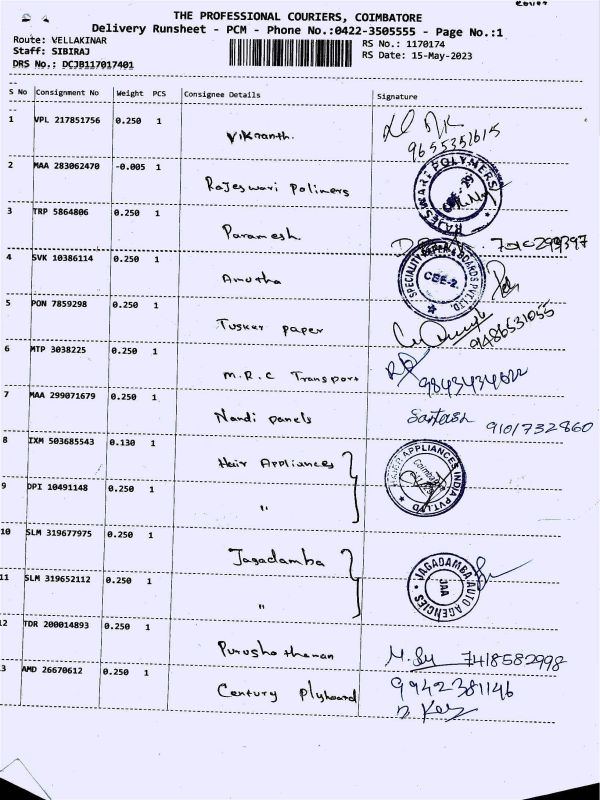 THE PROFESSIONAL COURIERS, COIMBATORE
Delivery Runsheet - PCM - Phone No.:0422-3505555 - Page No.:1
Route: VELLAKINAR
Staff: SIBIRAJ
DRS No.: DCJB117017401
RS No.: 1170174
RS Date: 15-May-2023
S No Consignment No Weight PCS Consignee Details Signature
1 VPL 217851756 0.250 1 Vikranth.
9655351615
2 MAA 283062470 -0.005 1 Rajeswari Polimers
RAJESWARI POLYMERS
3 TRP 5864806 0.250 1 Paramesh
4 SVK 10386114 0.250 1 Amutha
SPECIALITY PAPER & BOARDS PVT.LTD.
CBE-2.
5 PON 7859298 0.250 1 Tusker paper
9486531055
6 MTP 3038225 0.250 1 M.R.C Transport
7 MAA 299071679 0.250 1 Nandi panels
Santosh 9101732860
8 IXM 503685543 0.130 1 Hair Appliances
APPLIANCES INDIA PVT.LTD
9 DPI 10491148 0.250 1 "
10 SLM 319677975 0.250 1 Jagadamba
JAGADAMBA AUTO AGENCIES
JAA
11 SLM 319652112 0.250 1 "
12 TDR 200014893 0.250 1 Purushothaman
7418582998
13 AMD 26670612 0.250 1 Century plyboard
9942381146